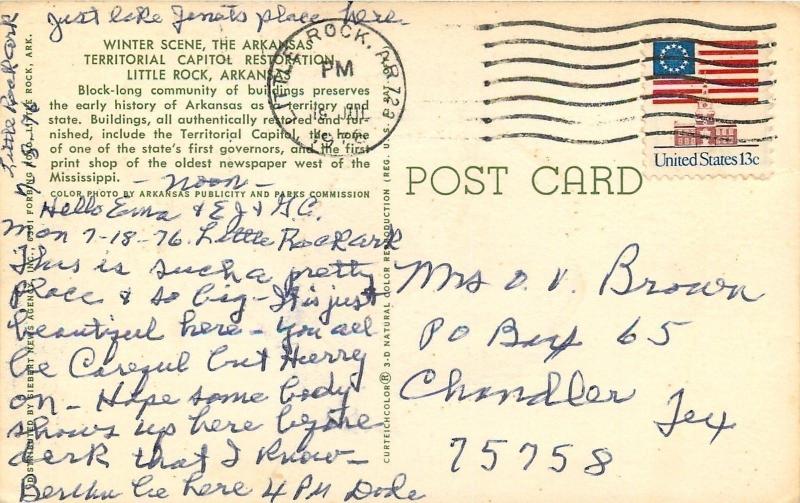 Just like Jenats place here.
WINTER SCENE, THE ARKANSAS
TERRITORIAL CAPITOL RESTORATION
LITTLE ROCK, ARKANSAS
Block-long community of buildings preserves
the early history of Arkansas as a territory and
state. Buildings, all authentically restored and fur-
nished, include the Territorial Capitol, the home
of one of the state's first governors, and the first
print shop of the oldest newspaper west of the
Mississippi.
COLOR PHOTO BY ARKANSAS PUBLICITY AND PARKS COMMISSION
- noon -
Hello Erma & E J & G.C.
Mon 7-18-76 Little Rock Ark
This is such a pretty
place & so big - It is just
beautiful here - you all
be Careful but Hurry
on - Hope some body
shows up here before
dark that I know -
Berthu be here 4 PM Dode
Little Rock Ark
7-18-76
DISTRIBUTED BY SIEBERT NEWS AGENCY, INC., 6301 FORBING ROAD, LITTLE ROCK, ARK.
CURTEICHCOLOR® 3-D NATURAL COLOR REPRODUCTION (REG. U.S.A.
LITTLE ROCK, AR 722
PM
18 JUL
POST CARD
United States 13c
Mrs O. V. Brown
PO Box 65
Chandler Tex
75758